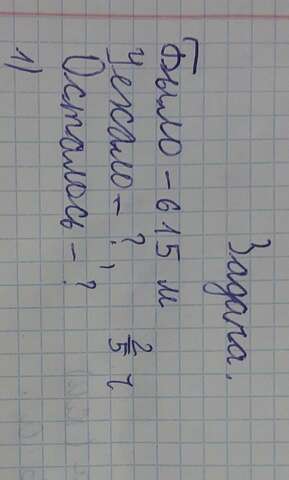 Задача.
Было - 615 м
Уехало - ?, 2/5 ч
Осталось - ?
1)